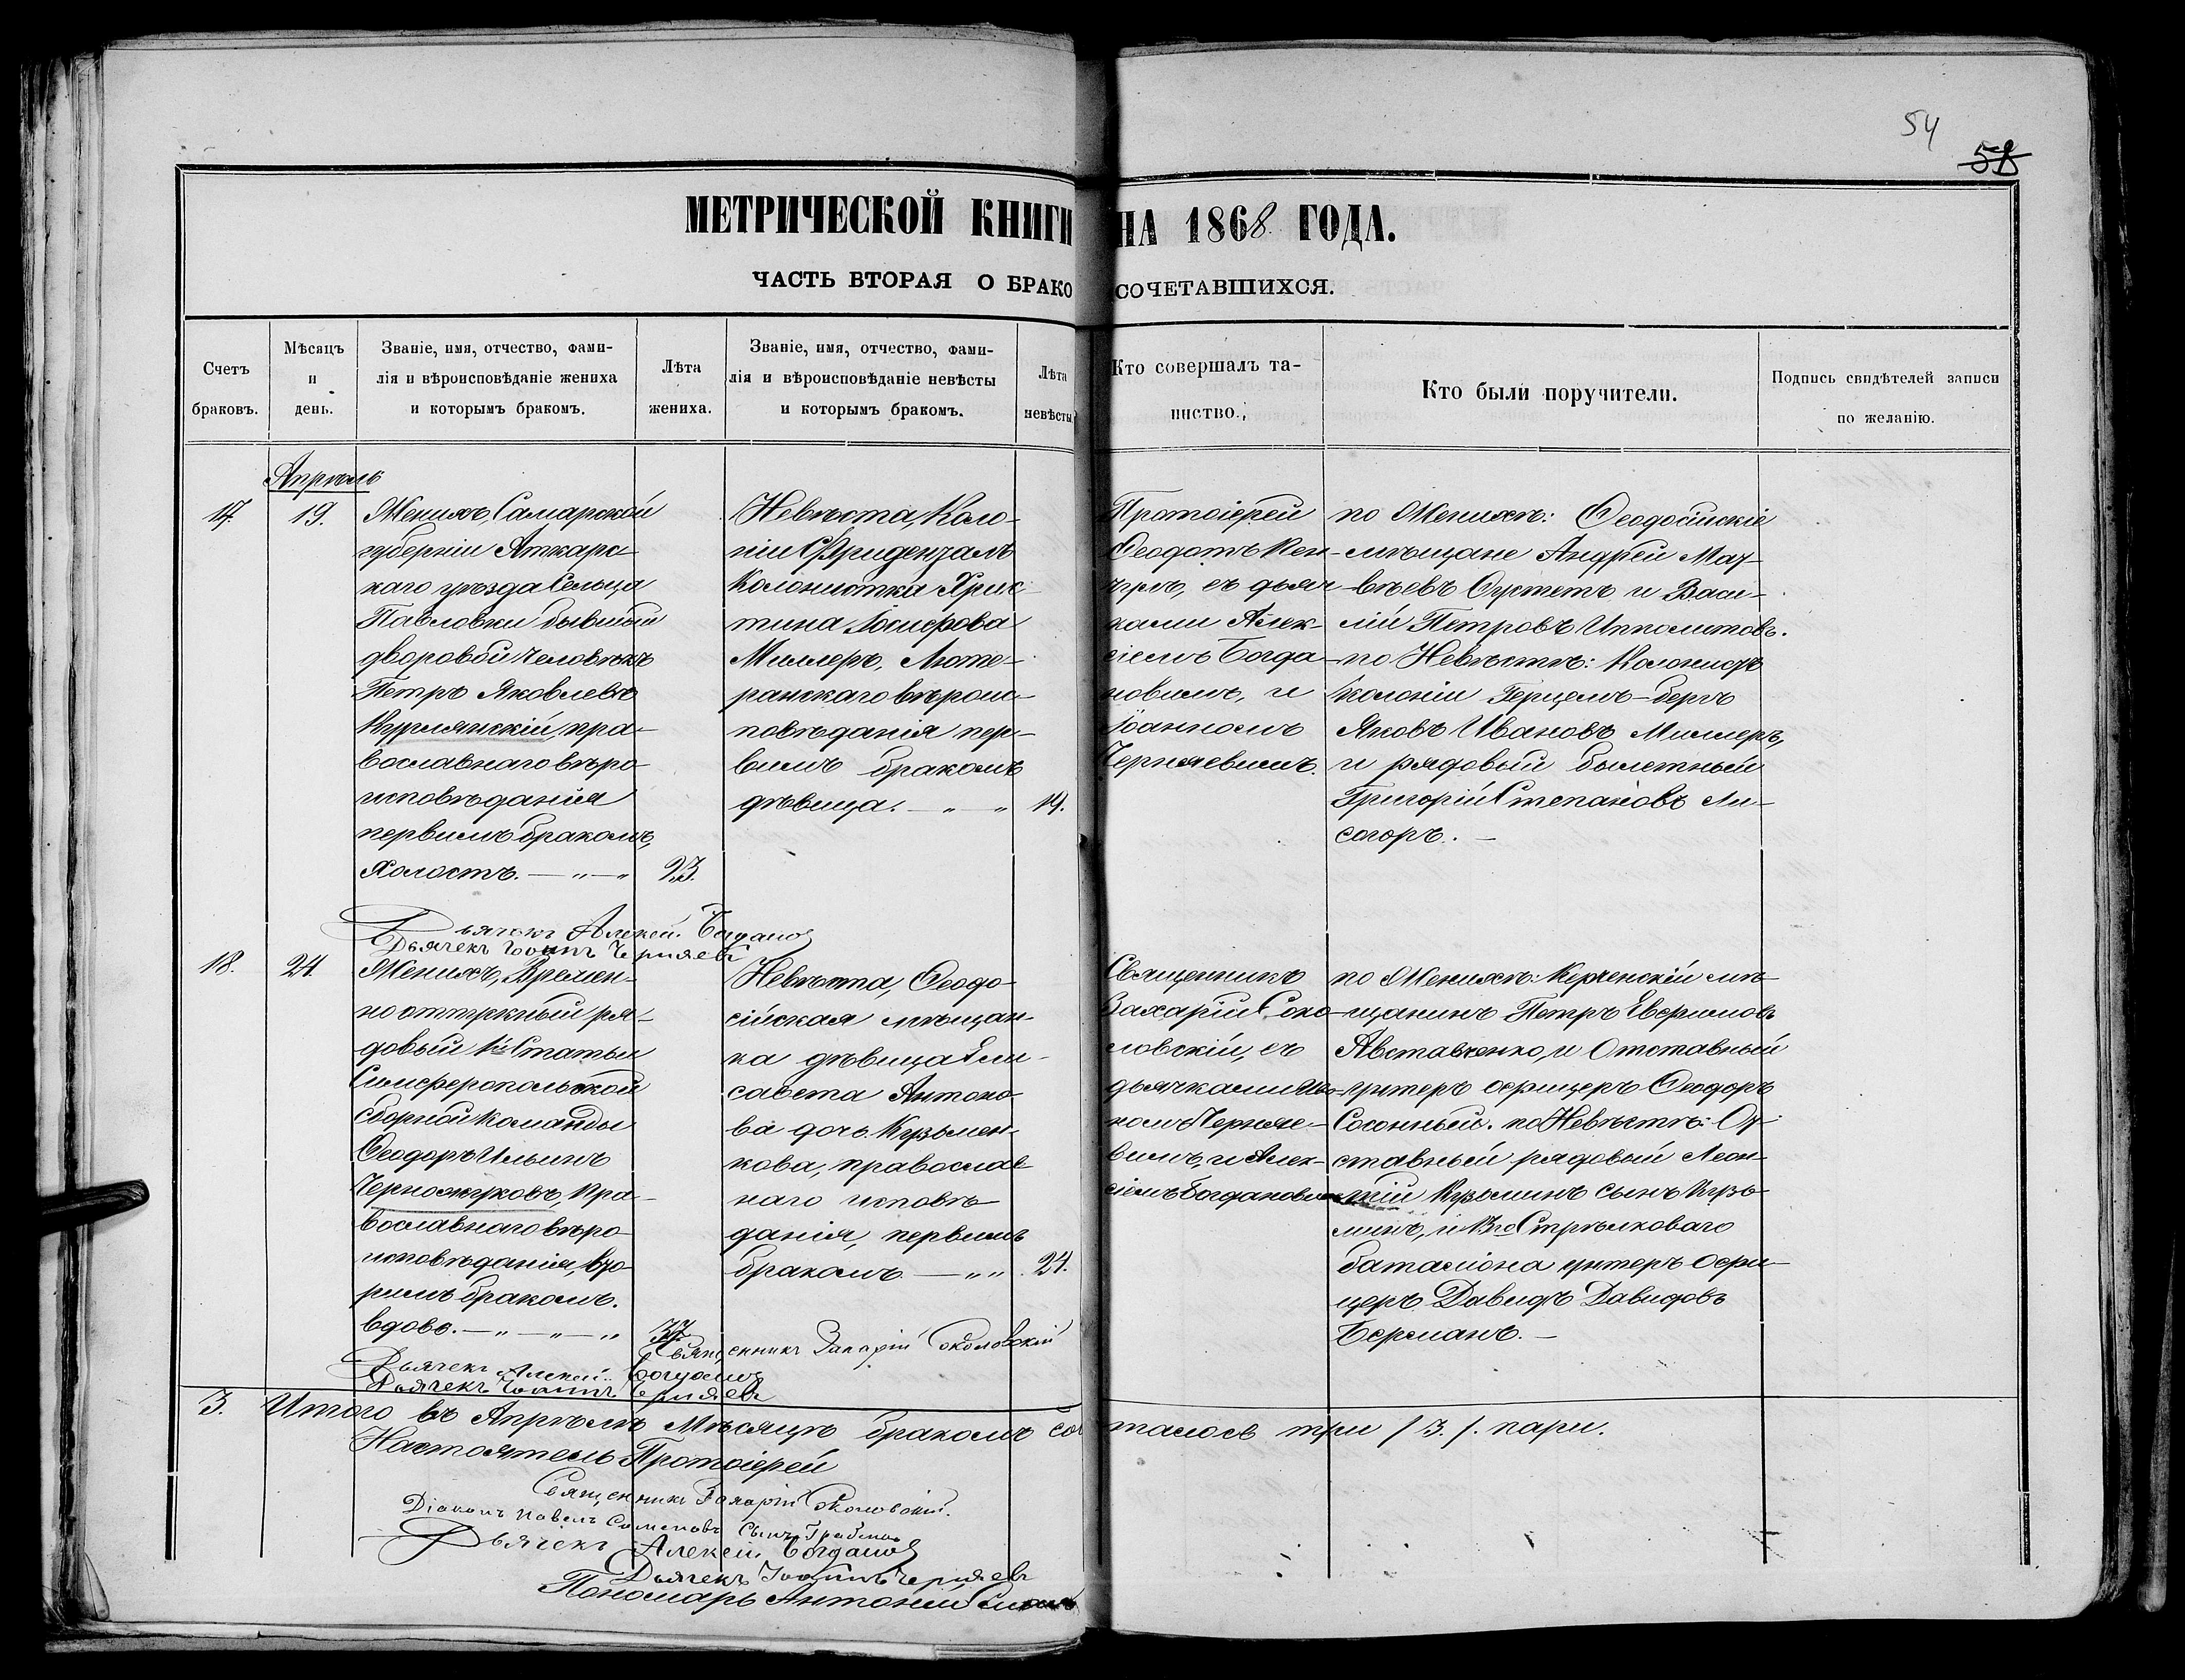 54
58
МЕТРИЧЕСКОЙ КНИГИ НА 1868 ГОДА.
ЧАСТЬ ВТОРАЯ О БРАКОСОЧЕТАВШИХСЯ.
Счетъ браковъ.
Мѣсяцъ и день.
Званіе, имя, отчество, фами-
лія и вѣроисповѣданіе жениха
и которымъ бракомъ.
Лѣта жениха.
Званіе, имя, отчество, фами-
лія и вѣроисповѣданіе невѣсты
и которымъ бракомъ.
Лѣта невѣсты
Кто совершалъ та-
инство.
Кто были поручители.
Подпись свидѣтелей записи
по желанію.
Апрѣль
17.
19.
Женихъ, Самарской
губерніи Аткарс-
каго уѣзда Сельца
Павловки бывшій
дворовой человѣкъ
Петръ Яковлевъ
Курлянскій, пра-
вославнаго вѣро-
исповѣданія
первымъ бракомъ,
холостъ. — „ — „
23.
Невѣста, Коло-
ніи Фриденталь
колонистка Хрис-
тина Іосифова
Миллеръ, Люте-
ранскаго вѣроис-
повѣданія пер-
вымъ бракомъ
дѣвица. — „ — „
19.
Протоіерей
Ѳеодотъ Кен-
чулъ, съ дьяч-
ками Алек-
сіемъ Богда-
новымъ, и
Іоанномъ
Черняевымъ.
по Женихѣ: Ѳеодосійскіе
мѣщане Андрей Мат-
вѣевъ и Васи-
лій Петровъ Ипполитовъ.
по Невѣстѣ: Колонистъ
колоніи Герцем-бергъ
Яковъ Ивановъ Миллеръ,
и рядовый билетный
Григорій Степановъ Ли-
согоръ. —
Дьячекъ Алексѣй Богдановъ
Дьячекъ Іоаннъ Черняевъ
18.
24.
Женихъ, Времен-
ноотпускный ря-
довый 1й Статьи
Симферопольской
сборной команды
Ѳеодоръ Ильинъ
Черножуковъ, Пра-
вославнаго вѣро-
исповѣданія, вто-
рымъ бракомъ.
вдовъ. — „ — „ — „
37.
Невѣста, Ѳеодо-
сійская мѣщан-
ка дѣвица Ели-
савета Антоно-
ва дочь Кузьмен-
кова, православ-
наго исповѣ-
данія, первымъ
бракомъ — „ „
24.
Священникъ
Захарій Соко-
ловскій, съ
дьячками Іоан-
номъ Черняе-
вымъ, и Алек-
сіемъ Богдановымъ
по Женихѣ: Керченскій мѣ-
щанинъ Петръ
и Отставный
унтеръ офицеръ Ѳеодоръ
по Невѣстѣ: От-
ставный рядовый Леон-
тій Кузьминъ сынъ Кузь-
минъ, и Стрѣлковаго
баталіона унтеръ офи-
церъ Давидъ Давидовъ
Берманъ. —
Священникъ Захарій Соколовскій
Дьячекъ Алексѣй Богдановъ
Дьячекъ Іоаннъ Черняевъ
3.
Итого въ Апрѣлѣ Мѣсяцѣ бракомъ сочеталось три /3./. пары.
Настоятель Протоіерей
Священникъ Захарій Соколовскій.
Діаконъ Павелъ Симеоновъ Сынъ
Дьячекъ Алексѣй Богдановъ
Дьячекъ Іоаннъ Черняевъ
Пономарь Антоній